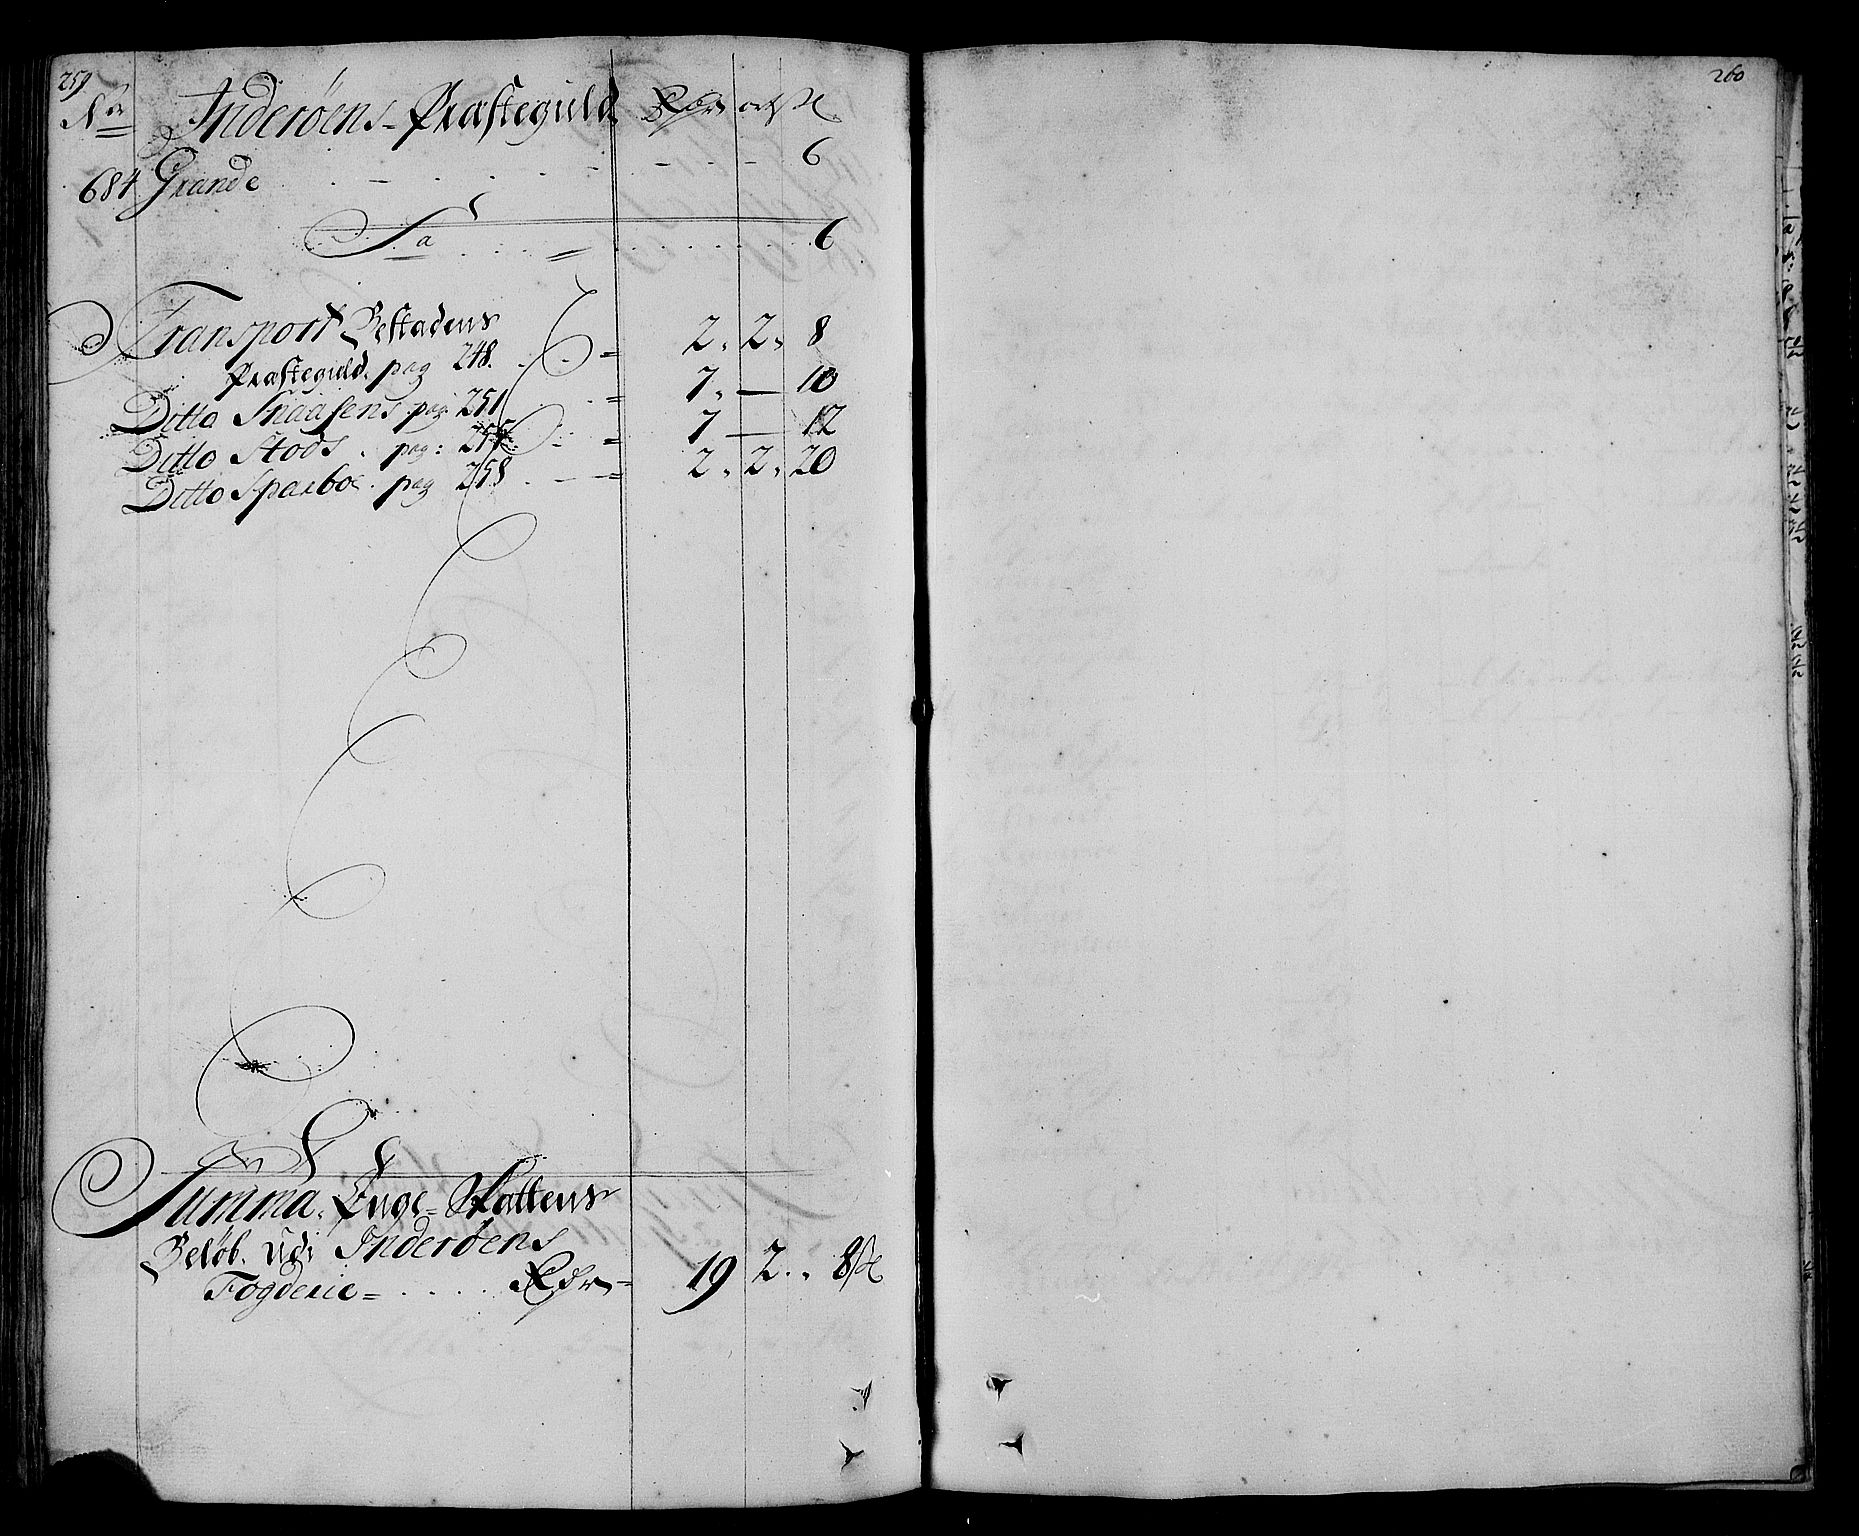 259
No Inderøens Præstegield Rdr ort ſl
684 Grande 6
Sa 6
Transport Bestadens
Præstegield. pag 248. 2. 2. 8
Ditto Snaasens pag: 251 7. — 10
Ditto Stods. pag: 255 7 — 12
Ditto Sparboe. pag 258 2. 2. 20
Summa. Enge-Skattens
Beløb. udi Inderøens
Fogderie = Rdr 19 2 . 8 ſl
260